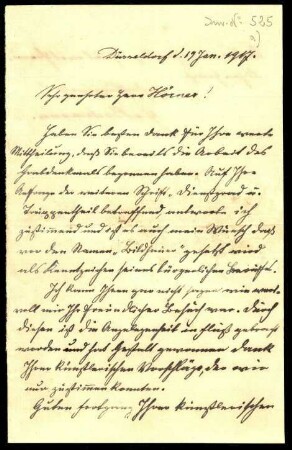 Inv. No 585
a)
Düsseldorf d. 19 Jan. 1917.
Sehr geehrter Herr Hörner!
Haben Sie besten Dank für Ihre werte
Mittheilung, daß Sie bereits die Arbeit des
Grabdenkmals begonnen haben. Auf Ihre
Anfrage der weiteren Schrift, Dienstgrad u.
Truppentheil betreffend antworte ich
zustimmend und ist es auch mein Wunsch daß
vor den Namen, Bildhauer" gesetzt wird
als Kennzeichen seines bürgerlichen Berufes.
Ich kann Ihnen gar nicht sagen wie wert-
voll mir Ihr freundlicher Besuch war. Durch
diesen ist die Angelegenheit in Fluß gebracht
worden und hat Gestalt gewonnen dank
Ihrer künstlerischen Vorschläge, der wir
nur zustimmen konnten.
Guten Fortgang Ihrer künstlerischen